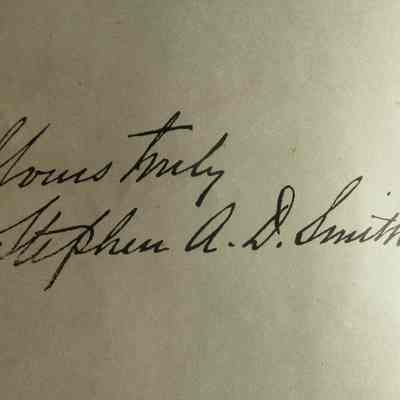 Yours truly
Stephen A. D. Smith